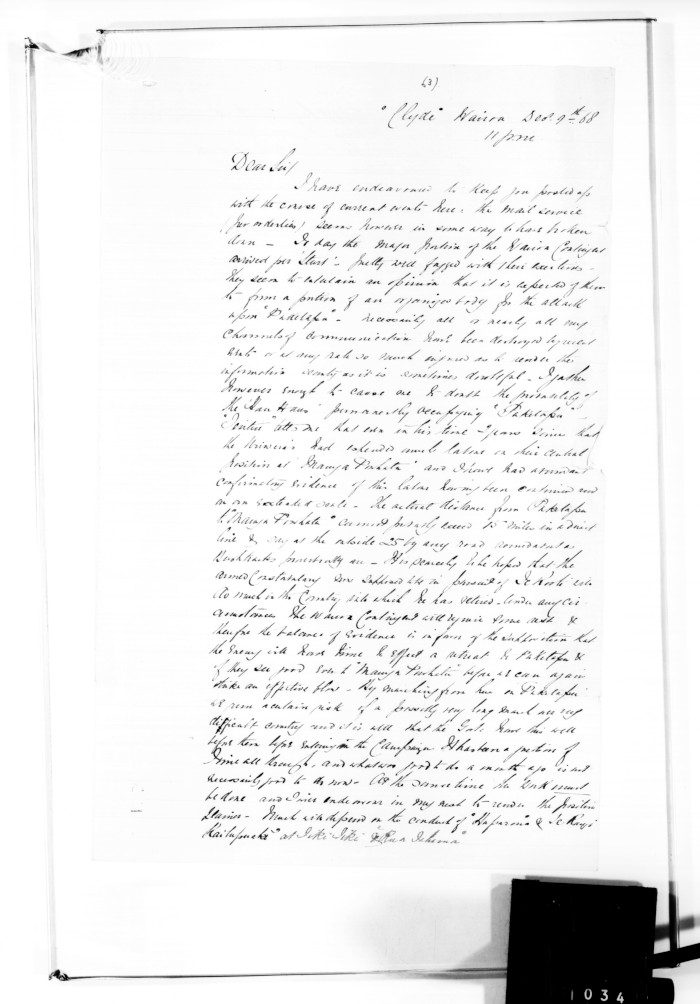 (3)
"Clyde" Wairoa Dec 9th 68
11 pm
Dear Sir
I have endeavoured to keep you posted up
with the course of current events here: the mail service
(per orderlies) seems however in some way to have broken
down - To day the major portion of the Wairoa Contingent
arrived per "Sturt" - pretty well fagged with their exertions -
They seem to entertain an opinion that it is expected of them
to form a portion of an organized body for the attack
upon "Puketapu" - necessarily all or nearly all my
channels of communication have been destroyed by recent
events or at any rate so much injured as to render the
information scanty as it is sometimes doubtful - I gather
however enough to cause me to doubt the probability of
the "Hau Haus" permanently occupying "Puketapu" -
tells me that even in his time - years since that
the had extended much labor on their central
position at "Maunga Powhatu" and I have had
confirmatory evidence of this labor having been continued and
on an extended scale - The actual distance from Puketapu
to "Maunga Powhatu" cannot possibly exceed 15 miles in a direct
line & say at the outside 25 by any road
Bush tracks proverbially are - It is scarcely to be hoped that the
armed Constabulary in pursuit of Te Kooti will
do much in the Country into which he has retired - under any cir
cumstances the Wairoa Contingent will require some rest &
therefore the balance of evidence is in favor of the supposition that
the Enemy will have time to effect a retreat to Puketapu &
if they see good even to "Maunga Powhatu" before we can again
strike an effective blow - By marching from here on Puketapu
we run a certain risk of a possibly very long march over very
difficult country and it is well that the Govt have this well
before them before entering on the Campaign It has been a question of
time all through, and what was good to do a month ago is not
necessarily good to do now - At the same time the work must
be done and I will endeavour in my next to render the position
clearer - Much will depend on the conduct of "Hapurona" & Te Rangi
at Tiki Tiki
1034